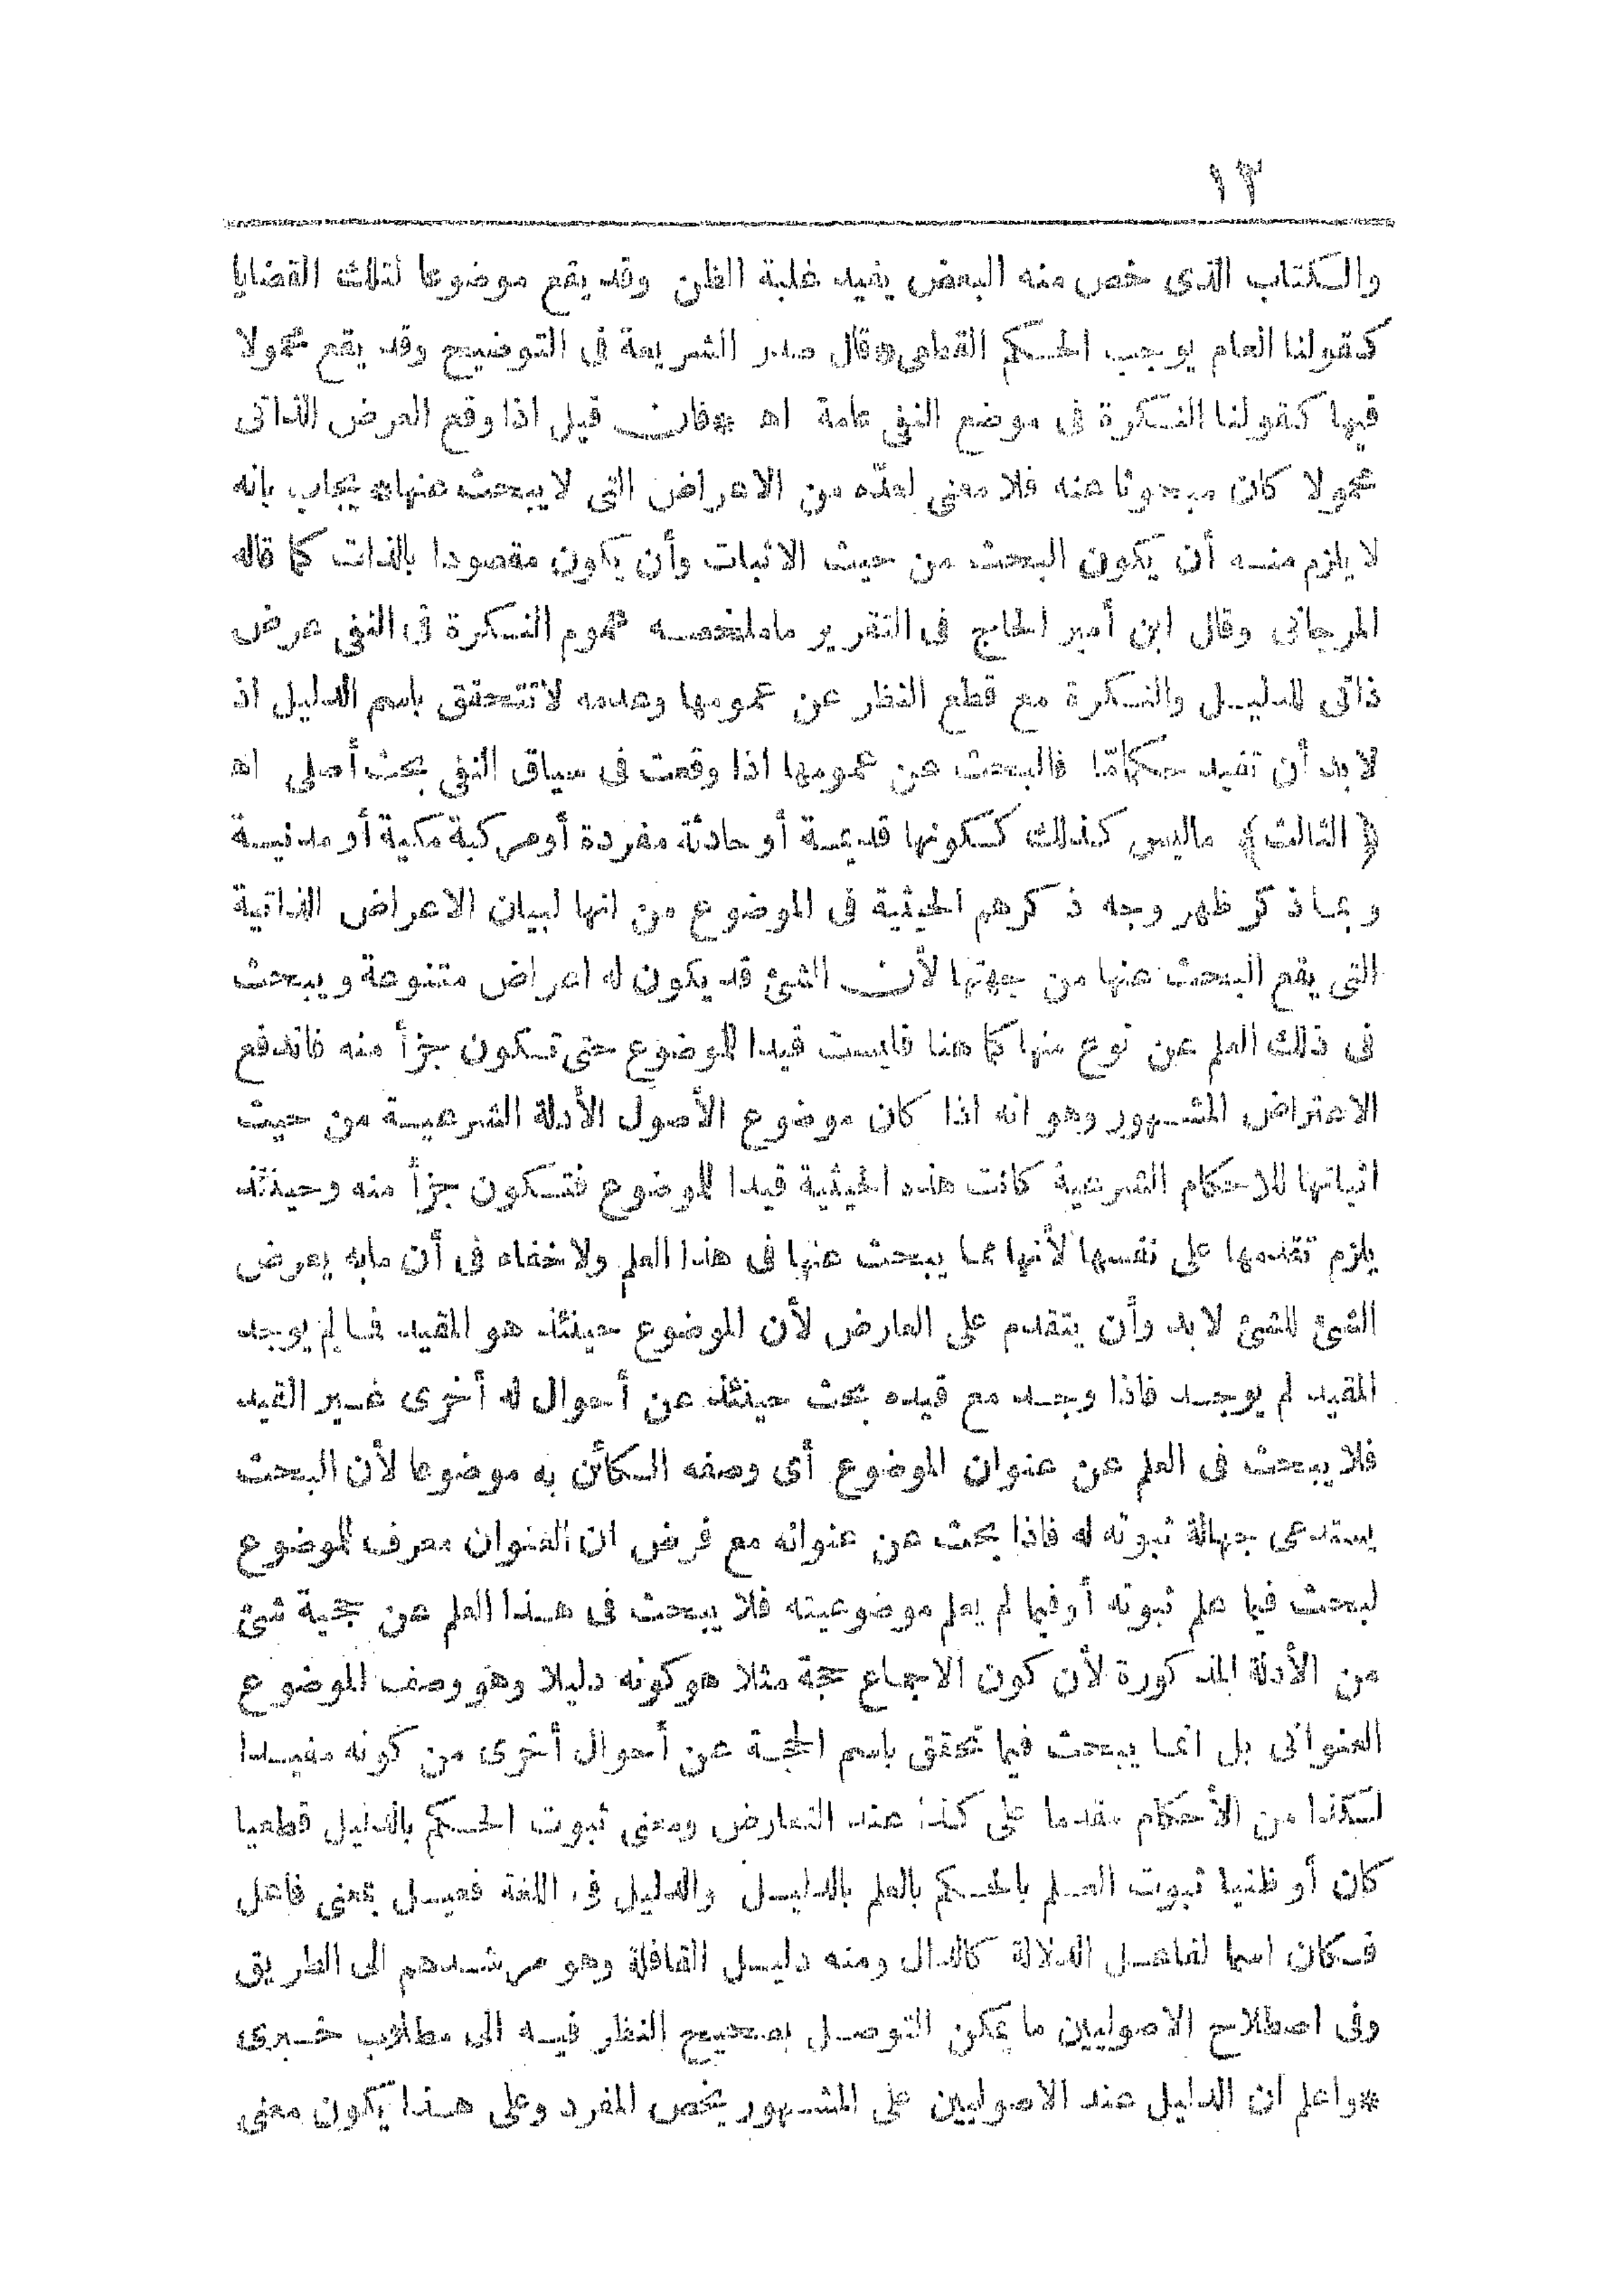 ١٢
والكتاب الذى خص منه البعض يفيد غلبة الظن وقد يقع موضوعا لتلك القضايا
كقولنا العام يوجب الحكم القطعى*قال صدر الشريعة فى التوضيح وقد يقع محمولا
فيها كقولنا النكرة فى موضع النفى عامة اه *فان قيل اذا وقع العرض الذاتى
محمولا كان مبحوثا عنه فلا معنى لعدّه من الاعراض التى لا يبحث عنها* يجاب بانه
لا يلزم منه أن يكون البحث من حيث الاثبات وأن يكون مقصودا بالذات كما قاله
المرجانى وقال ابن أمير الحاج فى التقرير ماملخصه عموم النكرة فى النفى عرض
ذاتى للدليل والنكرة مع قطع النظر عن عمومها وعدمه لاتتحقق باسم الدليل اذ
لا بد أن تفيد حكما مّا فالبحث عن عمومها اذا وقعت فى سياق النفى بحث أصلى اه
﴿ الثالث ﴾ ماليس كذلك ككونها قديمة أو حادثة مفردة أو مركبة مكية أو مدنية
وبما ذكر ظهر وجه ذكرهم الحيثية فى الموضوع من انها لبيان الاعراض الذاتية
التى يقع البحث عنها من جهتها لأن الشئ قد يكون له اعراض متنوعة ويبحث
فى ذلك العلم عن نوع منها كما هنا فليست قيدا للموضوع حتى تكون جزأ منه فاندفع
الاعتراض المشهور وهو انه اذا كان موضوع الأصول الأدلة الشرعية من حيث
اثباتها للاحكام الشرعية كانت هذه الحيثية قيدا للموضوع فتكون جزأ منه وحينئذ
يلزم تقدمها على نفسها لأنها مما يبحث عنها فى هذا العلم ولا خفاء فى أن مابه يعرض
الشئ للشئ لا بد وأن يتقدم على العارض لأن الموضوع حينئذ هو المقيد فما لم يوجد
المقيد لم يوجد فاذا وجد مع قيده بحث حينئذ عن أحوال له أخرى غير القيد
فلا يبحث فى العلم عن عنوان الموضوع أى وصفه الكائن به موضوعا لأن البحث
يستدعى جهالة ثبوته له فاذا بحث عن عنوانه مع فرض ان العنوان معرف للموضوع
لبحث فيما علم ثبوته أو فيما لم يعلم موضوعيته فلا يبحث فى هذا العلم عن حجية شئ
من الأدلة المذكورة لأن كون الاجماع حجة مثلا هو كونه دليلا وهو وصف الموضوع
العنوانى بل انما يبحث فيما تحقق باسم الحجة عن أحوال أخرى من كونه مفيدا
لكذا من الأحكام مقدما على كذا عند التعارض ومعنى ثبوت الحكم بالدليل قطعيا
كان أو ظنيا ثبوت العلم بالحكم بالعلم بالدليل والدليل فى اللغة فعيل بمعنى فاعل
فكان اسما لفاعل الدلالة كالدال ومنه دليل القافلة وهو مرشدهم الى الطريق
وفى اصطلاح الاصوليين ما يمكن التوصل بصحيح النظر فيه الى مطلوب خبرى
*واعلم ان الدليل عند الاصوليين على المشهور يخص المفرد وعلى هذا يكون معنى